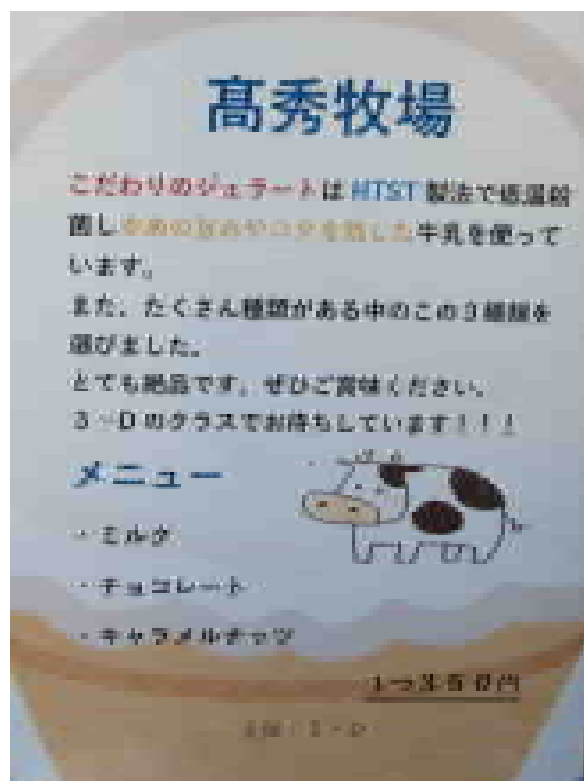 髙秀牧場
こだわりのジェラートは HTST 製法で低温殺
菌し本来の旨みやコクを残した牛乳を使って
います。
また、たくさん種類がある中のこの3種類を
選びました。
とても絶品です。ぜひご賞味ください。
3-Dのクラスでお待ちしています!!!
メニュー
・ミルク
・チョコレート
・キャラメルナッツ
1つ350円